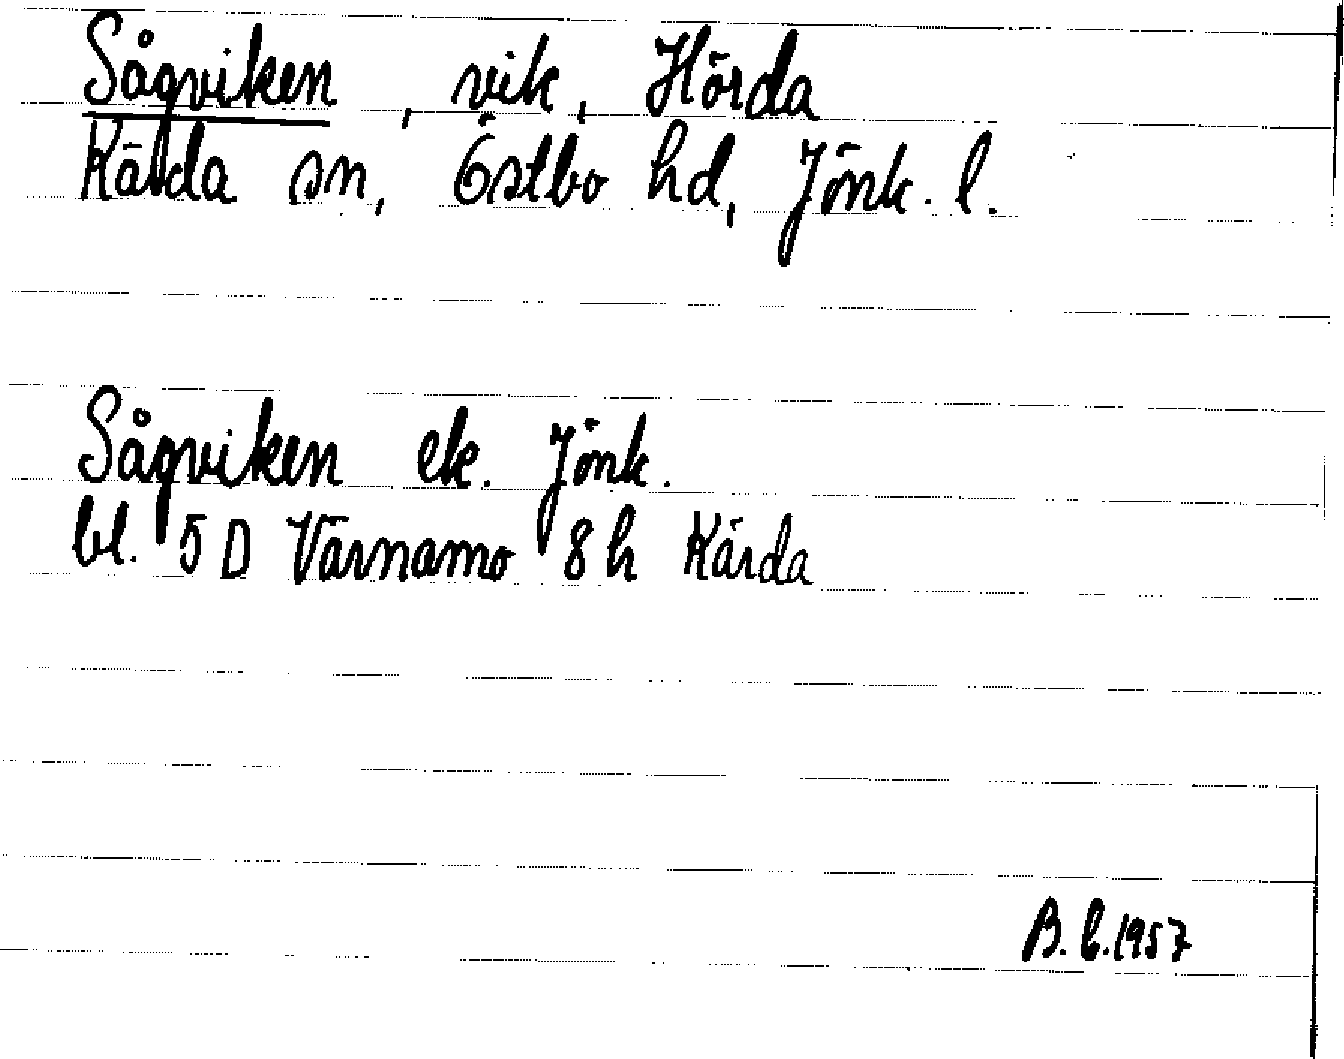 Sågviken, vik, Hörda
Kärda sn, Östbo hd, Jönk. l.
Sågviken ek. Jönk.
bl. 5D Värnamo 8h Kärda
B. b. 1957